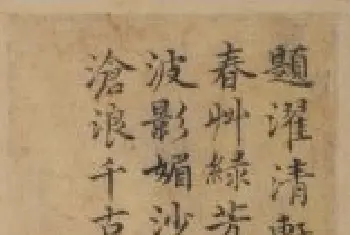 題濯清軒
春艸綠芳
波影媚沙
滄浪千古